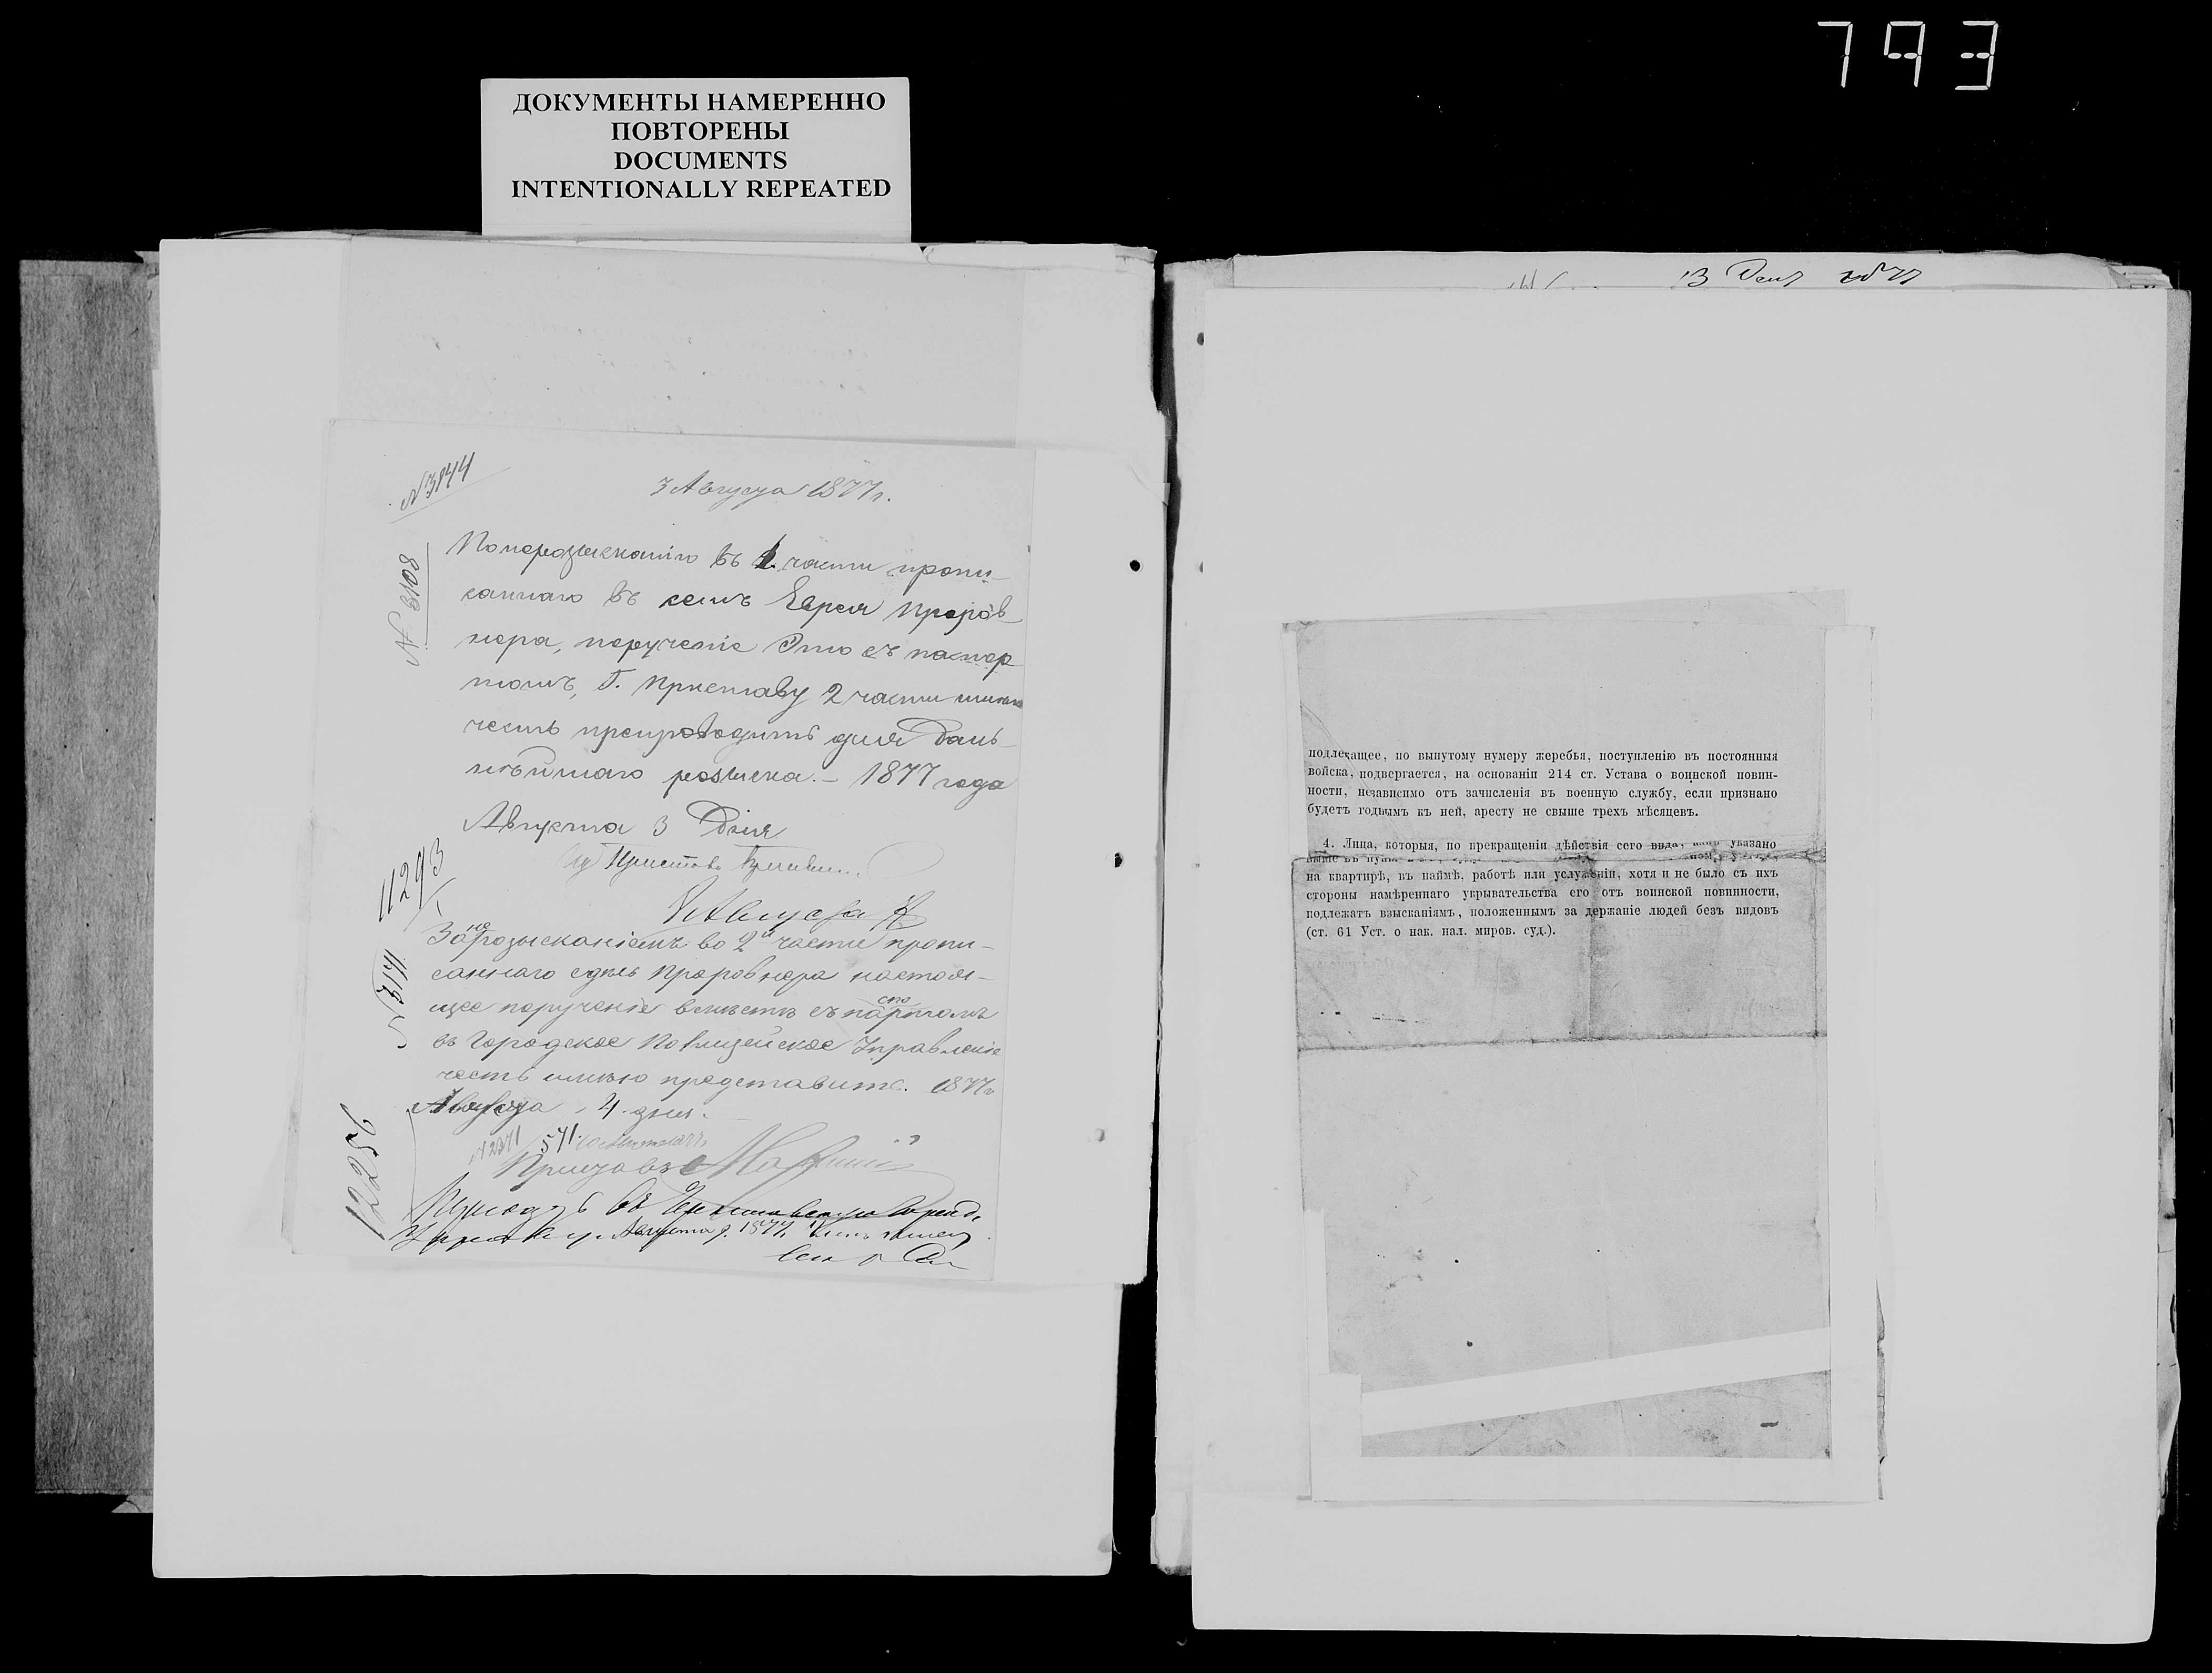 793
ДОКУМЕНТЫ НАМЕРЕННО
ПОВТОРЕНЫ
DOCUMENTS
INTENTIONALLY REPEATED
N 3144
3 Августа 1877 г.
N 3108
въ 1. части пропи-
саннаго въ семъ Еврея Проров-
нера, порученіе Это съ паспор-
томъ, Г. Приставу 2 части имею
честь препроводить для даль-
нѣйшаго розыска. – 1877 года
Августа 3 Дня
Приставъ
11293
Августа
За не розысканіемъ во 2й части пропи-
саннаго здѣсь Проровнера настоя-
N 3171
щее порученіе вмѣстѣ съ паспортомъ
въ Городское Полицейское Управленіе
честь имѣю представить. 1877 г
Августа 4 дня.
12256
Приставъ
Августа 1877
13 1877
подлежащее, по вынутому нумеру жеребья, поступленію въ постоянныя
войска, подвергается, на основаніи 214 ст. Устава о воинской повин-
ности, независимо отъ зачисленія въ военную службу, если признано
будетъ годнымъ къ ней, аресту не свыше трехъ мѣсяцевъ.
4. Лица, которыя, по прекращеніи дѣйствія сего вида, какъ указано
выше въ
на квартирѣ, въ наймѣ, работѣ или услуженіи, хотя и не было съ ихъ
стороны намѣреннаго укрывательства его отъ воинской повинности,
подлежатъ взысканіямъ, положеннымъ за держаніе людей безъ видовъ
(ст. 61 Уст. о нак. нал. миров. суд.).